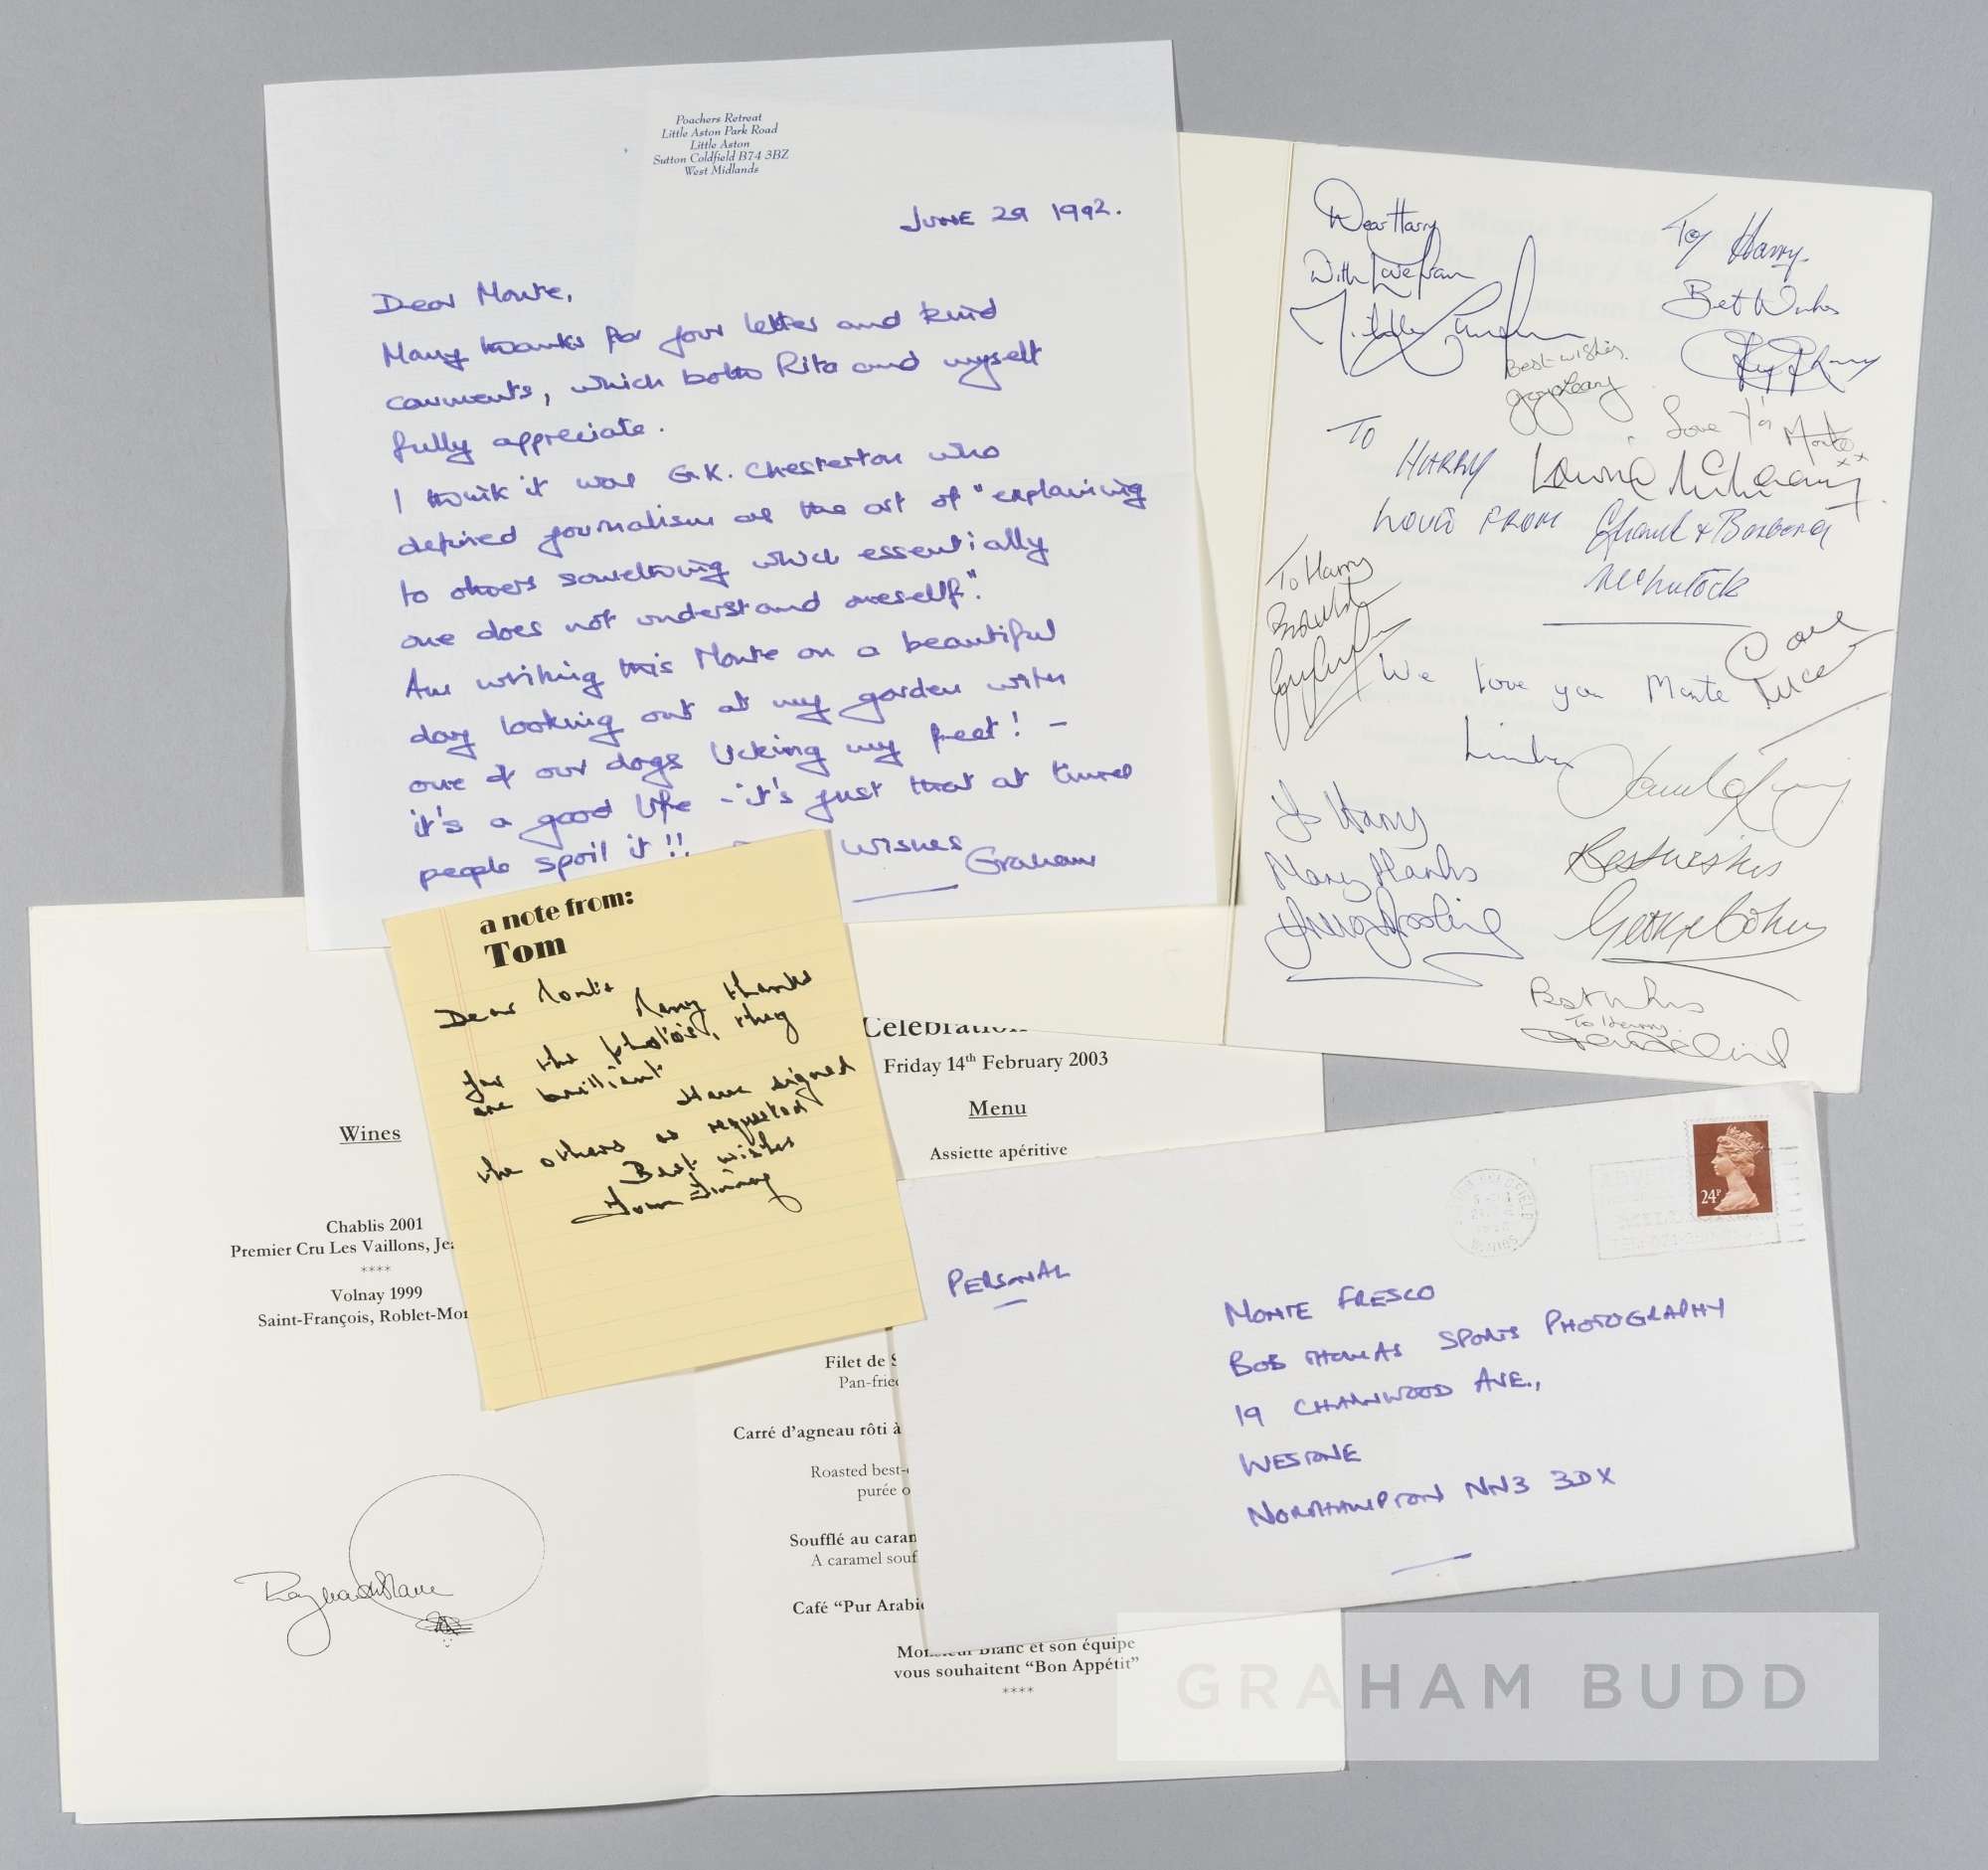 Poachers Retreat
Little Aston Park Road
Little Aston
Sutton Coldfield B74 3BZ
West Midlands
JUNE 29 1992.
Dear Monte,
Many thanks for your letter and kind
comments, which both Rita and myself
fully appreciate.
I think it was G.K. Chesterton who
defined journalism as the art of "explaining
to others something which essentially
one does not understand oneself".
Am writing this Monte on a beautiful
day looking out at my garden with
one of our dogs licking my feet! -
it's a good life - it's just that at times
people spoil it!! wishes
Graham
Dear Harry
With Love from
To Harry.
Best Wishes
Best wishes
Love Ya Monte xx
TO HARRY
LOVE FROM Frank & Barbara
McLintock
To Harry
Best Wishes
We love you Monte
To Harry
Many thanks
Best wishes
George Cohen
Best wishes
To Harry
a note from:
Tom
Dear Monte
Many thanks
for the photo's, they
are brilliant
Have signed
the others as requested
Best wishes
Tom Finney
Celebration
Friday 14th February 2003
Menu
Assiette apéritive
Wines
Chablis 2001
Premier Cru Les Vaillons, Jea
****
Volnay 1999
Saint-François, Roblet-Mon
Filet de S
Pan-fried
Carré d'agneau rôti à
Roasted best-
purée o
Soufflé au caram
A caramel souf
Café "Pur Arabic
Monsieur Blanc et son équipe
vous souhaitent "Bon Appétit"
****
Raymond Blanc
24P
PERSONAL
MONTE FRESCO
BOB THOMAS SPORTS PHOTOGRAPHY
19 CHARNWOOD AVE.,
WESTONE
NORTHAMPTON NN3 3DX
GRAHAM BUDD